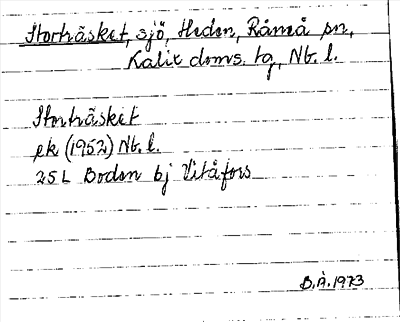 Storträsket, sjö, Heden, Råneå sn,
Kalix doms. tg, Nb. l.
Storträsket
ek (1952) Nb. l.
25 L Boden bj Vitåfors
B.Å. 1973